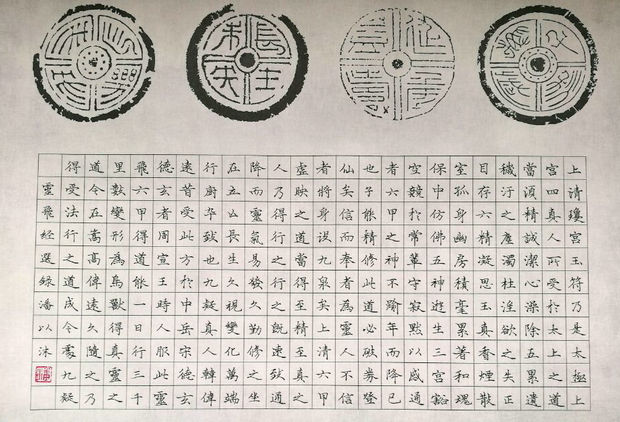 長生未央
延年益壽
上清瓊宮玉符乃是太極上
宮四真人所受於太上之道
當須精誠潔心澡除五累遺
穢汙之塵濁杜淫欲之失正
目存六精凝思玉真香煙散
室孤身幽房積毫累著和魂
保中仿佛五神遊生三宮豁
空競於常輩守寂默以感通
者六甲之神不踰年而降已
也子能精修此道必破券登
仙矣信而奉者為靈人不信
者將身沒九泉矣上清六甲
虛映之道當得至精至真之
人乃得行之行之既速致通
降而靈氣易發久勤修之坐
在立亡長生久視變化萬端
行廚卒致也九疑真人韓偉
遠昔受此方於中岳宋德玄
德玄者周宣王時人服此靈
飛六甲得道能一日行三千
里數變形為鳥獸得真靈之
道今在嵩高偉遠久隨之乃
得受法行之道成今處九疑
靈飛經選錄潘以沐